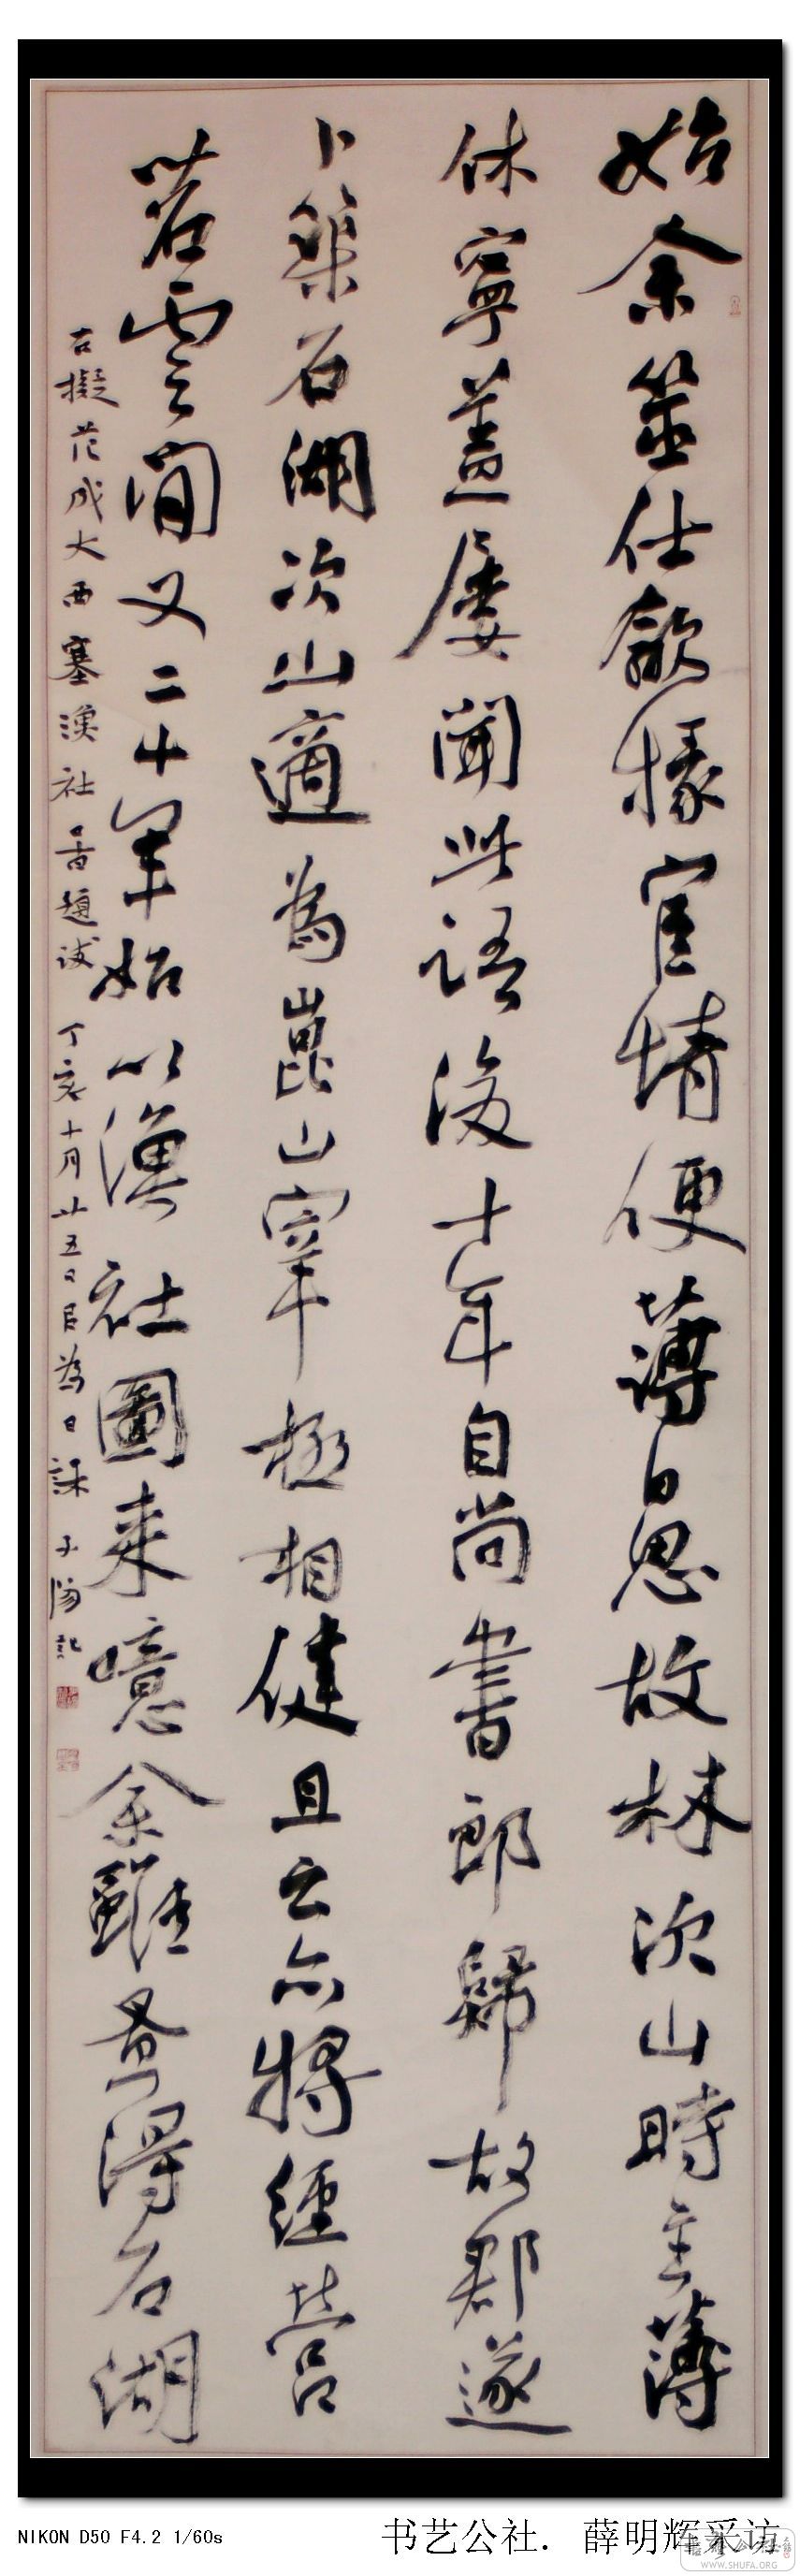 始余筮仕歙掾宦情便薄日思故林次山時主薄
休寧蓋屢聞此語後十年自尚書郎歸故郡遂
卜築石湖次山適為崑山宰極相健且云亦將經營
苕雲間又二十年始以漁社圖來噫余雖蚤得石湖
古擬范成大西塞漁社圖題跋 丁亥十月廿五日 為日課 子陽記
NIKON D50 F4.2 1/60s
书艺公社. 薛明辉采访
WWW.SHUFA.ORG